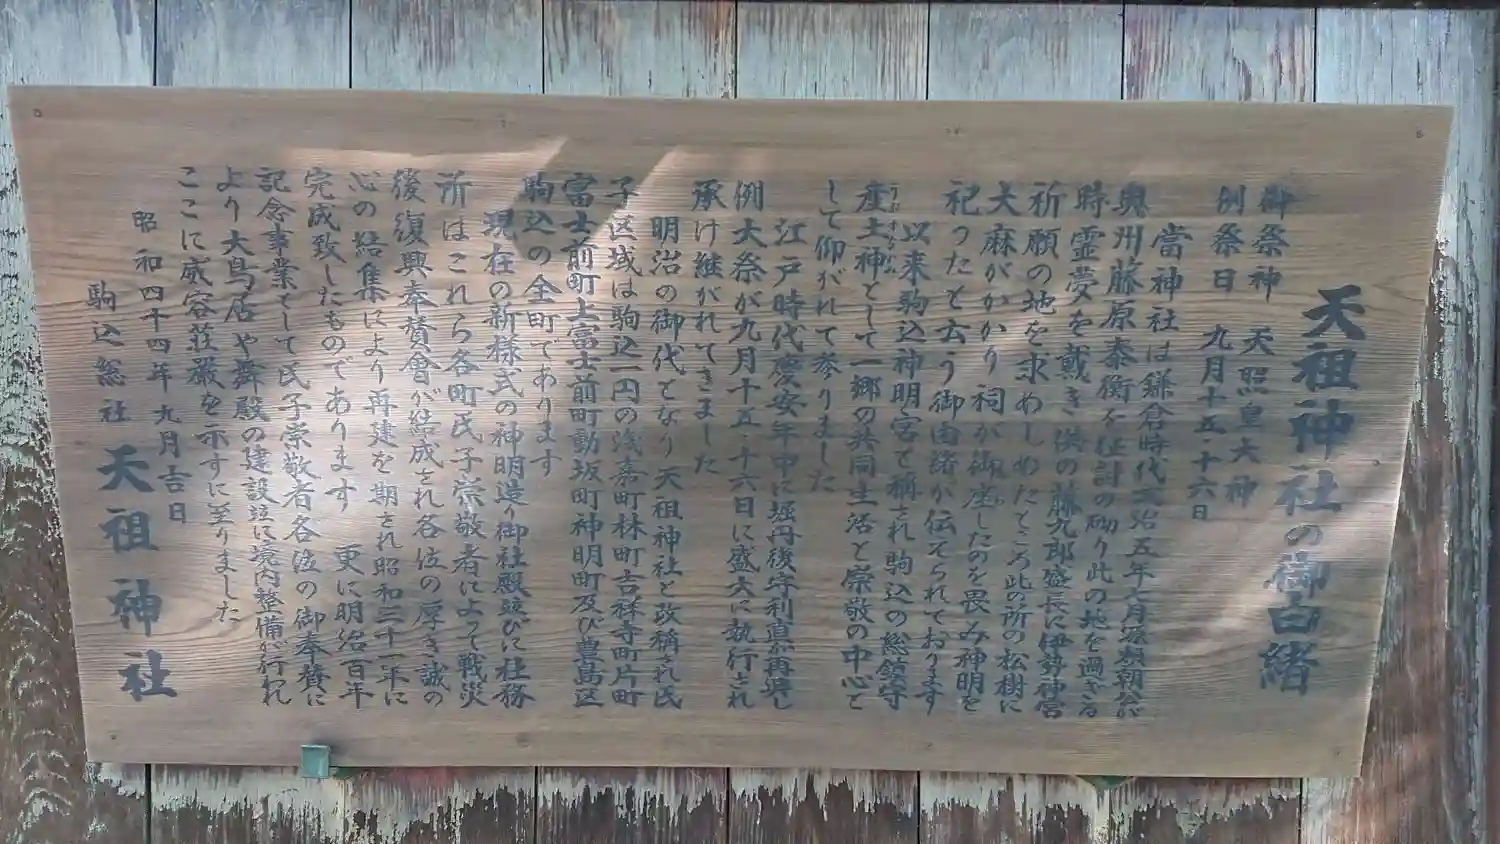 天祖神社の御由緒
御祭神　天照皇大神
例祭日　九月十五・十六日
當神社は鎌倉時代文治五年七月源頼朝公が
奥州藤原泰衡を征討の砌り此の地を過ぎる
時霊夢を戴き供の藤九郎盛長に伊勢神宮
祈願の地を求めしめたところ此の所の松樹に
大麻がかかり祠が御座したのを畏み神明を
祀ったと云う御由緒が伝えられております
以来駒込神明宮と稱され駒込の総鎮守
産土神として一郷の共同生活と崇敬の中心と
して仰がれて参りました
江戸時代慶安年中に堀丹後守利直再興し
例大祭が九月十五・十六日に盛大に執行され
承け継がれてきました
明治の御代となり天祖神社と改稱され氏
子区域は駒込一円の浅嘉町林町吉祥寺町片町
富士前町上富士前町動坂町神明町及び豊島区
駒込の全町であります
現在の新様式の神明造り御社殿竝びに社務
所はこれら各町氏子崇敬者によって戦災
後復興奉賛會が結成され各位の厚き誠の
心の結集により再建を期され昭和三十一年に
完成致したものであります　更に明治百年
記念事業として氏子崇敬者各位の御奉賛に
より大鳥居や舞殿の建設竝に境内整備が行われ
ここに威容荘厳を示すに至りました
昭和四十四年九月吉日
駒込総社　天祖神社